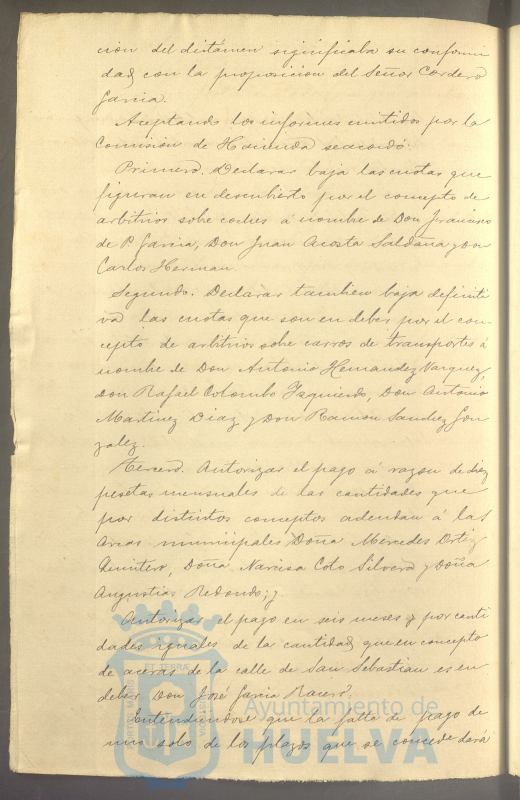 cion del dictámen significaba su conformi
dad con la proposicion del Señor Cordero
Garcia.
Aceptando los informes emitidos por la
Comision de Hacienda se acordó:
Primero. Declarar baja las cuotas que
figuran en descubierto por el concepto de
arbitrios sobre coches á nombre de Don Francisco
de P. Garcia, Don Juan Acosta Saldaña y Don
Carlos Herman.
Segundo. Declarar tambien baja definiti
va las cuotas que son en deber por el con-
cepto de arbitrios sobre carros de transportes á
nombre de Don Antonio Hernandez Vazquez,
Don Rafael Colombo Izquierdo, Don Antonio
Martinez Diaz y Don Ramon Sanchez Gon
zalez.
Tercero. Autorizar el pago á razon de diez
pesetas mensuales de las cantidades que
por distintos conceptos adeudan á las
arcas municipales Doña Mercedes Ortiz
Quintero, Doña Narcisa Coto Silvera y Doña
Angustias Redondo; y
Autorizar el pago en seis meses y por canti
dades iguales de la cantidad que en concepto
de aceras de la calle de San Sebastian es en
deber Don José Garcia
Entendiendose que la falta de pago de
uno solo de los plazos que se concede dará
Ayuntamiento de
HUELVA